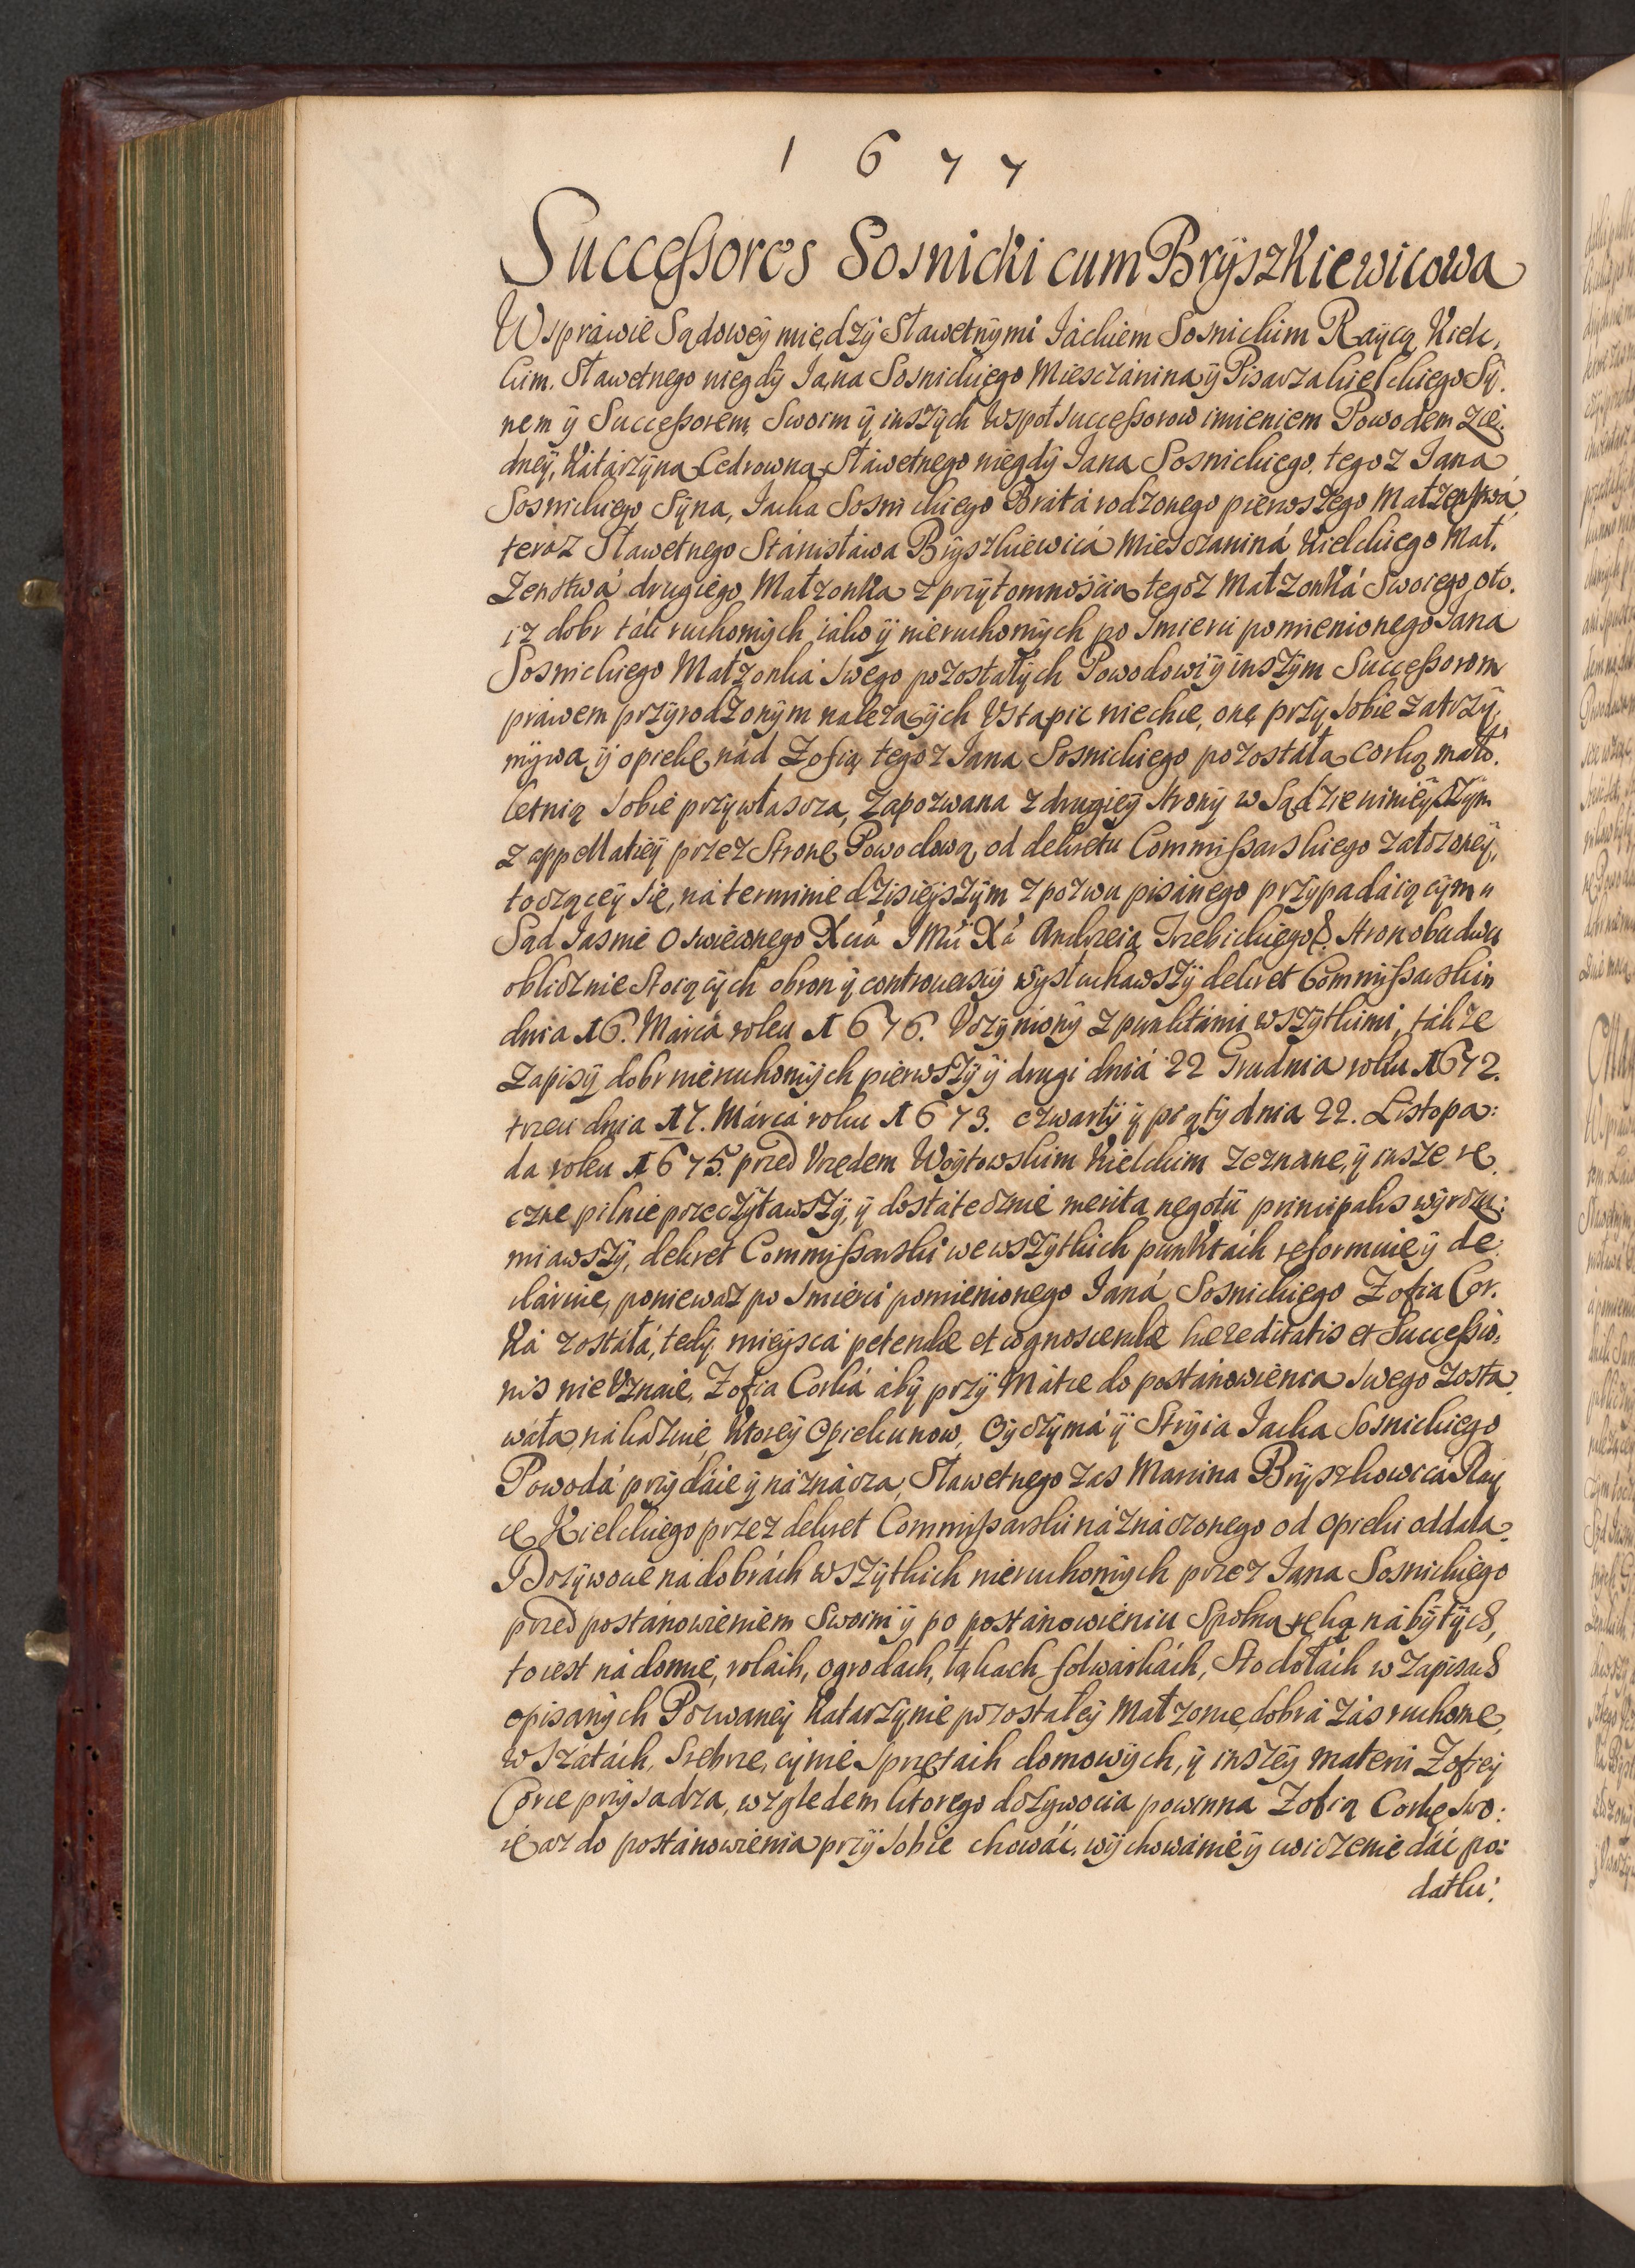 1 6 7 7
Successores Sosnicki cum Bryszkiewicowa
W sprawie Sądowey między Sławetnymi Jackiem Sosnickim Raycą Kiele,
ckim. Sławetnego niegdy Jana Sosnickiego Miesczánina ÿ Pisarza kielckiego Sÿ.
nem ÿ Successorem Swoim ÿ inszÿch Wspołsuccessorow imieniem Powodem z ie.
dneÿ, Kátárzÿna Cedrowna Słáwetnego niegdÿ Jana Sosnickiego, tegoz Jana
Sosnickiego Sÿna, Jacka Sosnickiego Brátá rodzonego pierwszego Małzenstwá,
teraz Sławetnego Stánisłáwa Brÿszkiewicá Miesczaniná Kielckiego Mał.
zenstwá drugiego Małzonka z prÿtomnoscia tegoz Małzonká Swoiego, oto.
iz dobr ták ruchomÿch, iako ÿ nieruchomÿch po smierci pomienionego Jana
Sosnickiego Małzonká swego pozostałÿch Powodowi ÿ inszÿm Successorom
práwem przÿrodzonÿm nalezącÿch Vstąpic niechce, onę przÿ sobie zatrzÿ,
mÿwa, ÿ opiekę nád Zofią tegoz Jana Sosnickiego pozostáłą corką mało.
letnią sobie przÿwłascza, Zapozwana z drugieÿ stronÿ w Sądzie ninieÿszÿm
z appellátieÿ przez Stronę Powodową od dekretu Commissarskiego załozoneÿ,
tocząceÿ się, ná terminie dzisieÿszÿm z pozwu pisánego przÿpadáiącÿm
Sąd Jasnie Oswieconego Xcia JMci Xá Andrzeia Trzebickiego &. stron obudwu
oblicznie stoiącÿch obron ÿ controuersiÿ wÿsłuchawszÿ dekret Commissarskin
dnia 16. Márca roku 1676. Vczÿnionÿ z punktámi wszÿtkimi, tákze
zapisÿ dobr nieruchomÿch pierwszÿ ÿ drugi dniá 22 Grudnia roku 1672.
trzeci dnia 17. Márcá roku 1673. czwartÿ ÿ piątÿ dnia 22. Listopa:
da roku 1675. przed Vrzędem Woÿtowskim Kielckim zeznane, ÿ insze rę.
czne pilnie przeczÿtawszÿ, ÿ dostátecznie merita negotii principalis wÿrozu:
miawszÿ, dekret Commissarski we wszÿtkich punktách reformuie ÿ de.
kláruie, poniewaz po smierci pomienionego Janá Sosnickiego Zofia Cor.
ká zostáłá, tedÿ mieÿsca petendæ et cognoscendæ hæreditatis et Successio.
nis nie Vznáie, Zofia Corká ábÿ przÿ Mátce do postánowienia swego zosta.
wáła nákázuie, Ktoreÿ Opiekunow, Oÿczÿmá ÿ Strÿia Jacka Sosnickiego
Powodá prÿdáie ÿ náznácza, Sławetnego zas Marcina Brÿszkowicá Raÿ
cę Kielckiego przez dekret Commissarski náznáczonego od opieki oddala.
Dozÿwocie ná dobrách wszÿtkich nieruchomÿch przez Jana Sosnickiego
przed postánowieniem Swoim ÿ po postánowieniu Spolną ręką nábÿtÿch,
to iest ná domie, rolách, ogrodach, łąkach folwárkách, Stodołách w zapisach
opisanÿch Pozwaneÿ Katarzÿnie pozostałeÿ Małzonce, dobrá zás ruchome,
w szátách, srebrze, cÿnie sprzętach domowÿch, ÿ inszeÿ materii Zofieÿ
Corce prÿsadza, względem ktorego dozÿwocia powinna Zofią Corkę swo:
ię az do postánowienia przÿ sobie chowáć, wÿchowánie ÿ cwiczenie dáć po:
datku: